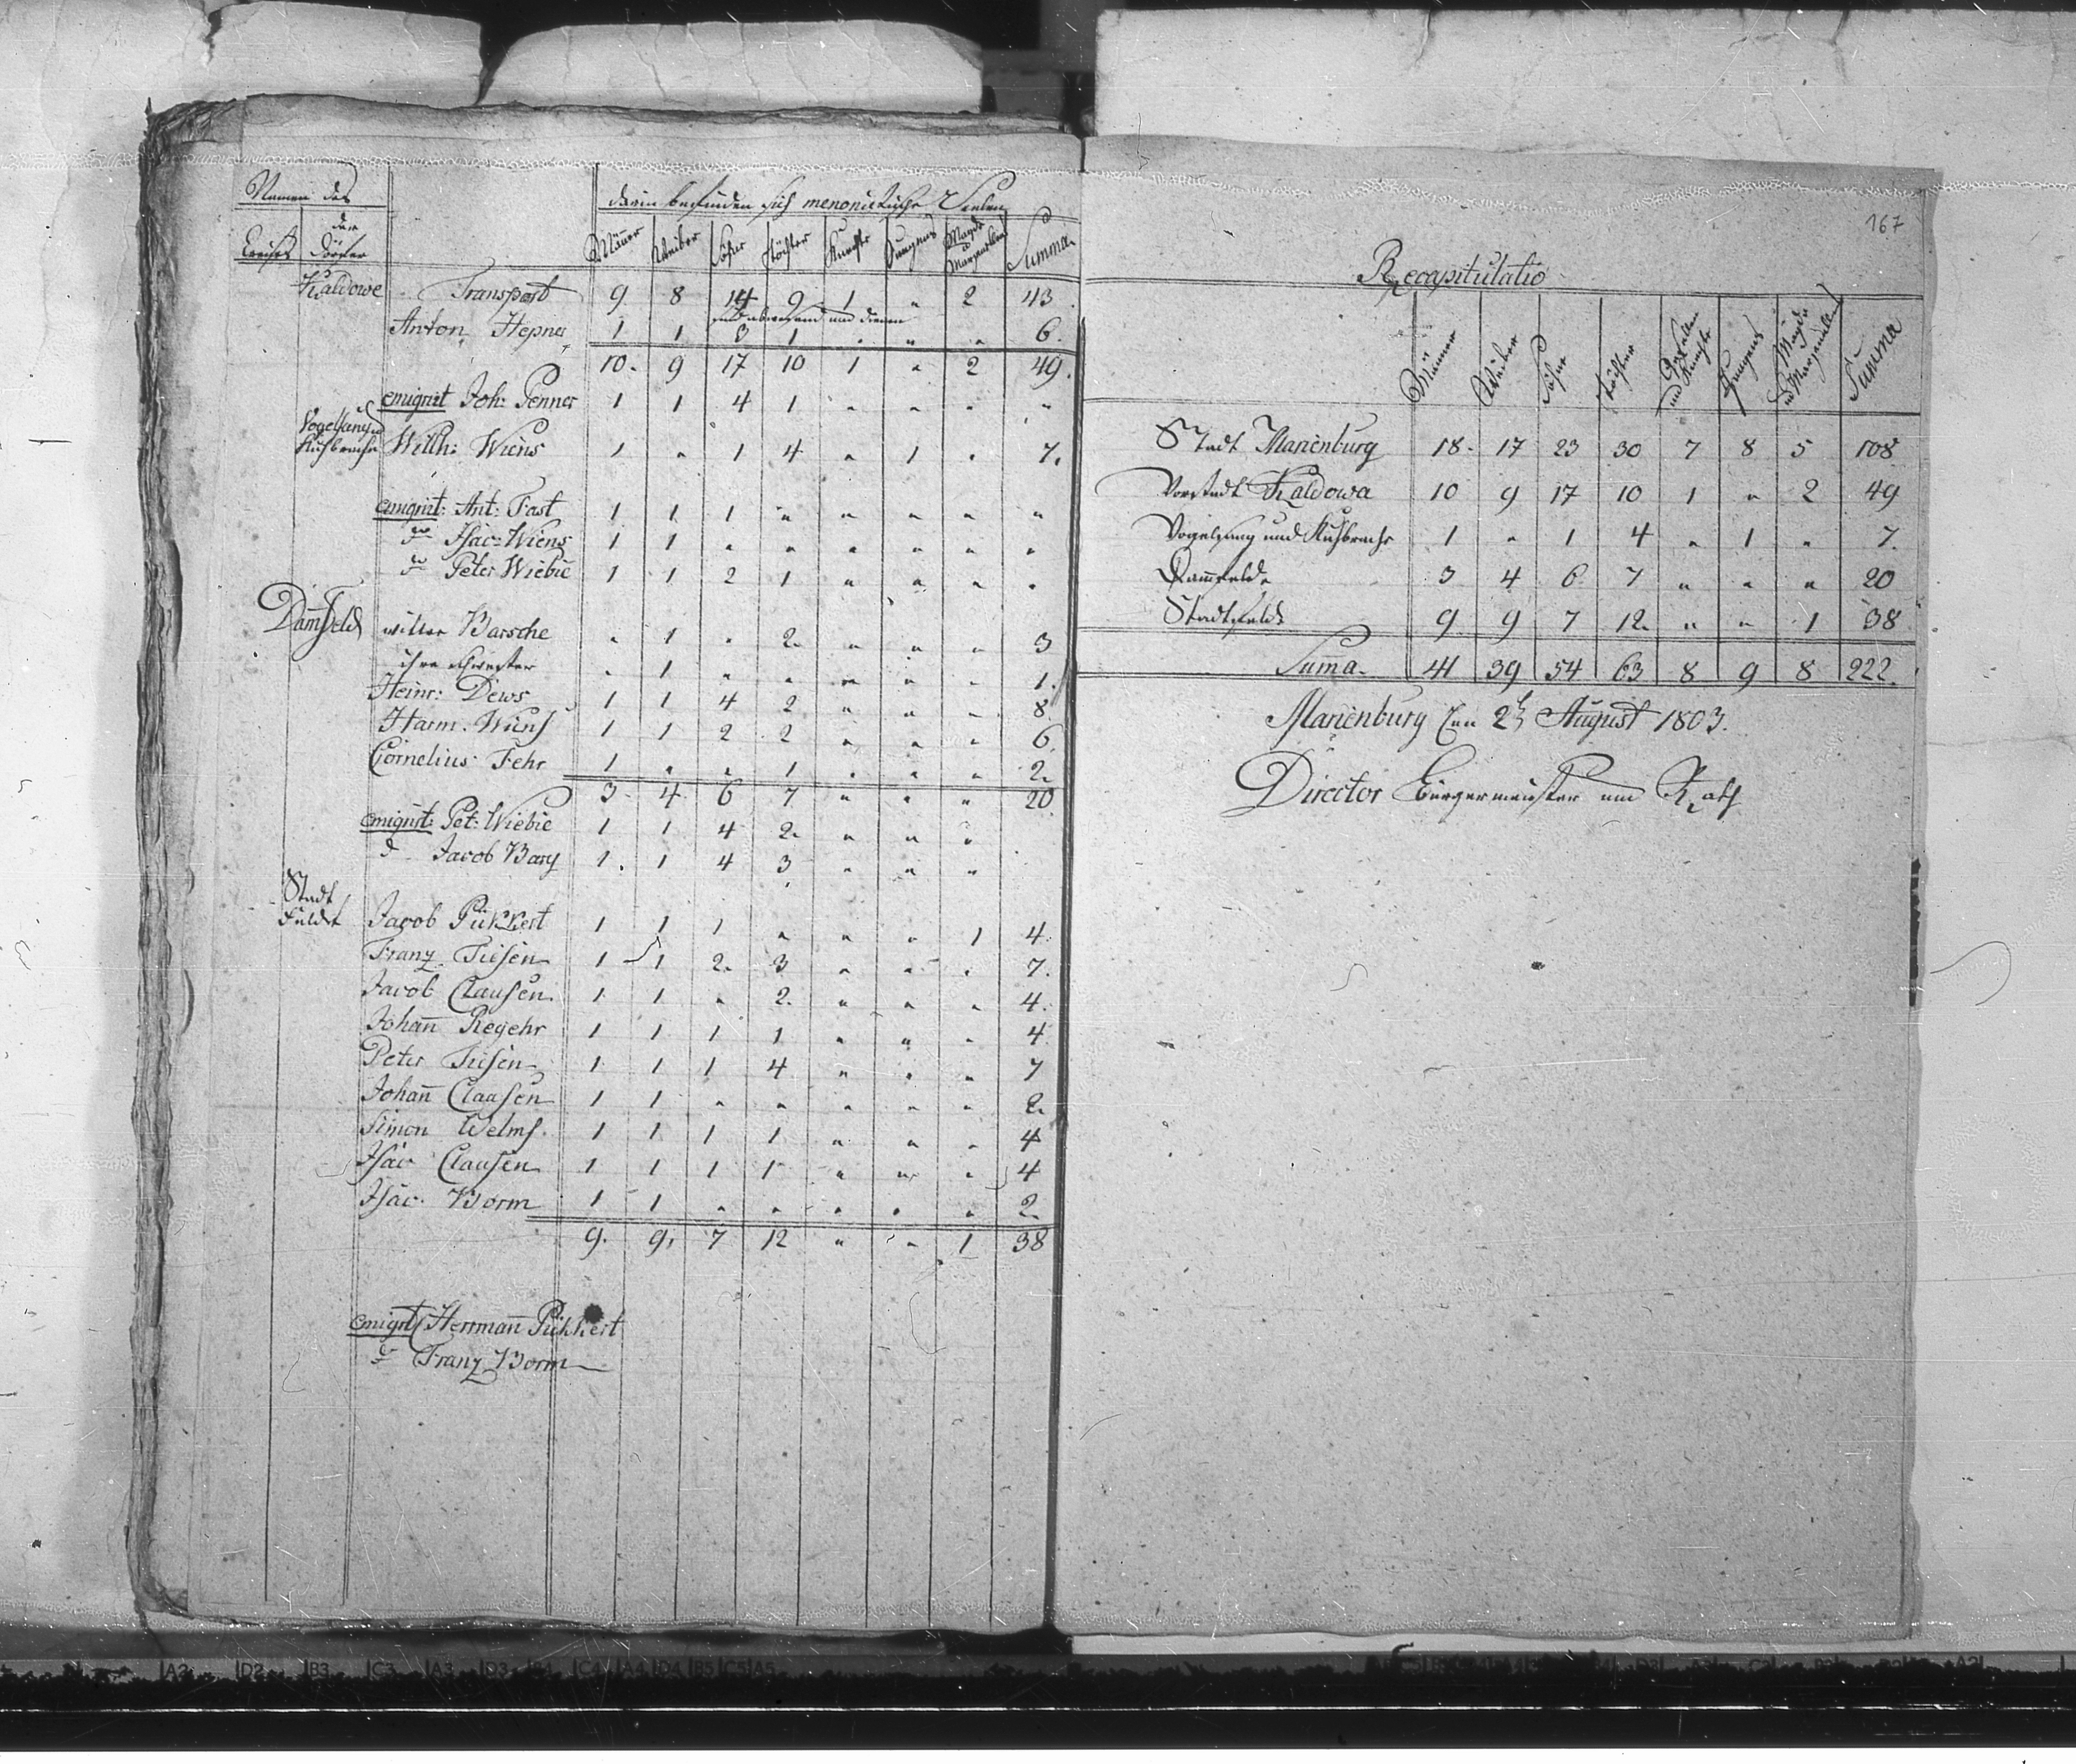 Namen des
darin befinden sich menonistische Seelen
Creises der Dörfer Männer Weiber Söhne Töchter Knechte Jungens Mägde u Marjellen Summa
Kaldowe Transport 9 8 14 9 1 " 2 43
sind abwesend und dienen
Anton Hepner 1 1 3 1 " " " 6.
10. 9 17 10 1 " 2 49.
emigrirt Joh: Penner 1 1 4 1 " " " "
Vogelsang u Kuhbrache Willh: Wiens 1 " 1 4 " 1 " 7.
emigrirt: Ant: Fast 1 1 1 " " " " "
do Isac: Wiens 1 1 " " " " " "
do Peter Wiebie 1 1 2 1 " " " "
Damfeld wittwe Barsche " 1 " 2. " " " 3
ihre Schwester " 1 " " " " " 1.
Heinr: Dews 1 1 4 2 " " " 8
Harm. Wiens 1 1 2 2 " " " 6
Cornelius Fehr 1 " " 1 " " " 2.
3 4 6 7 " " " 20
emigrirt: Pet: Wiebie 1 1 4 2. " " "
do Jacob Barg 1. 1 4 3 " " "
Stadt Feldt Jacob Pükkert 1 1 1 " " " 1 4
Franz Tiesen 1 1 2. 3 " " " 7.
Jacob Claussen 1 1 " 2. " " " 4.
Johan̄ Regehr 1 1 1 1 " " " 4
Peter Tiesen 1 1 1 4 " " " 7
Johan̄ Claasen 1 1 " " " " " 2.
Simon Welms 1 1 1 1 " " " 4
Isac Claussen 1 1 1 1 " " " 4
Isac Borm 1 1 " " " " " 2.
9. 9. 7 12 " " 1 38
emigrt Herrman̄ Pükkert
do Franz Borm
167
Recapitulatio
Männer Weiber Söhne Töchter Gesellen und Knechte Jungens Mägde und Marjellen Summa
Stadt Marienburg 18 17 23 30 7 8 5 108
Vorstadt Kaldowa 10 9 17 10 1 " 2 49
Vogelsang und Kuhbrache 1 " 1 4 " 1 " 7.
Dam̄felde 3 4 6 7 " " " 20
Stadtfeldt 9 9 7 12. " " 1 38
Sum̄a. 41 39 54 63 8 9 8 222.
Marienburg den 2t August 1803.
Director Bürgermeister und Rath